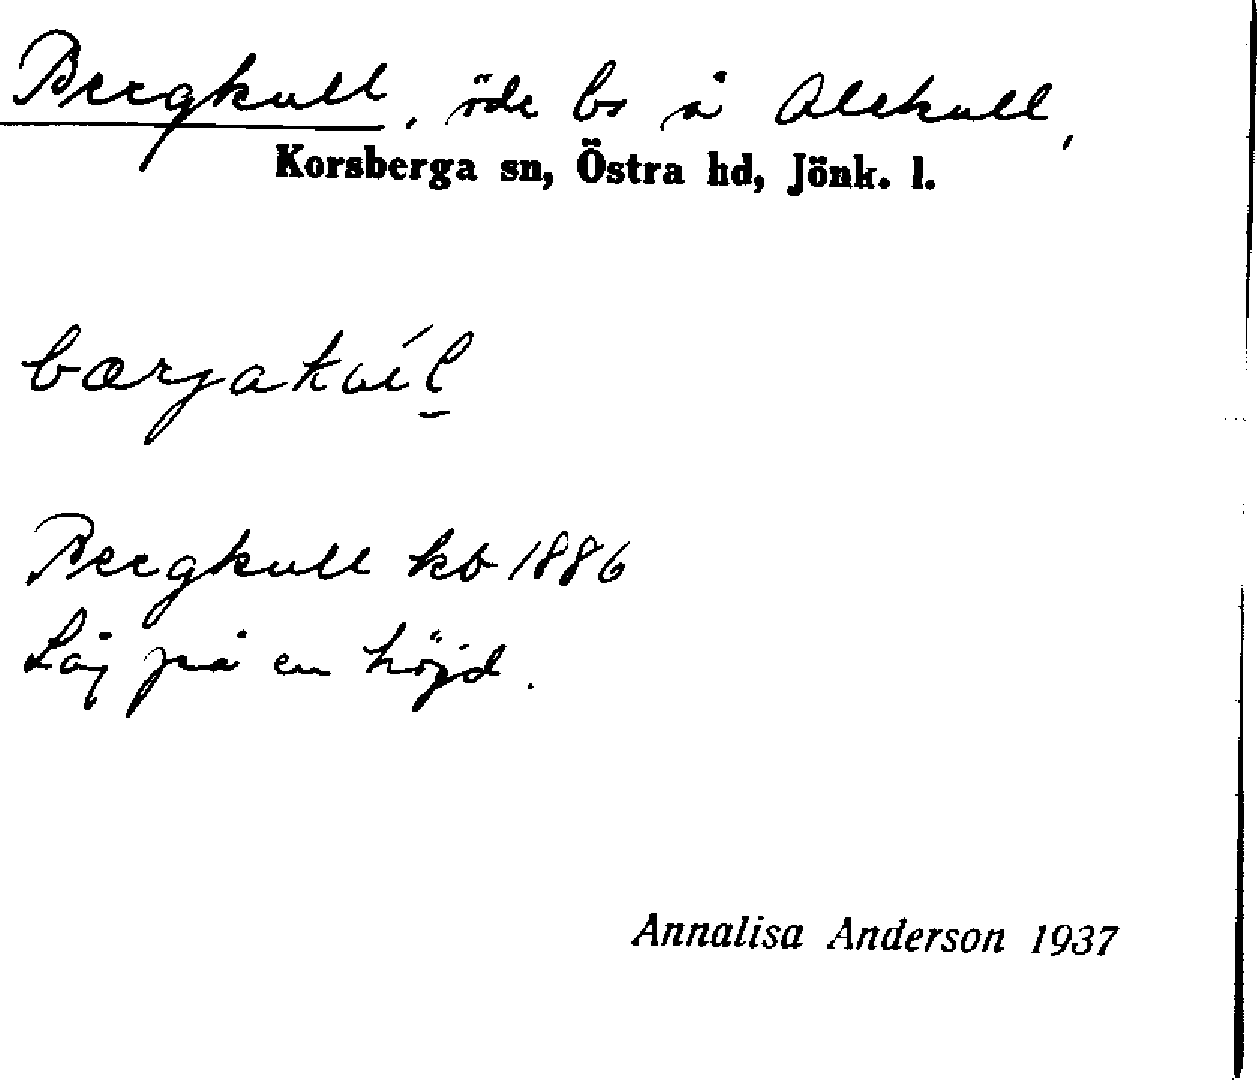 Bergkull, öde bs å Alekull,
Korsberga sn, Östra hd, Jönk. l.
Bergkull kb 1886
Låg på en höjd.
Annalisa Anderson 1937